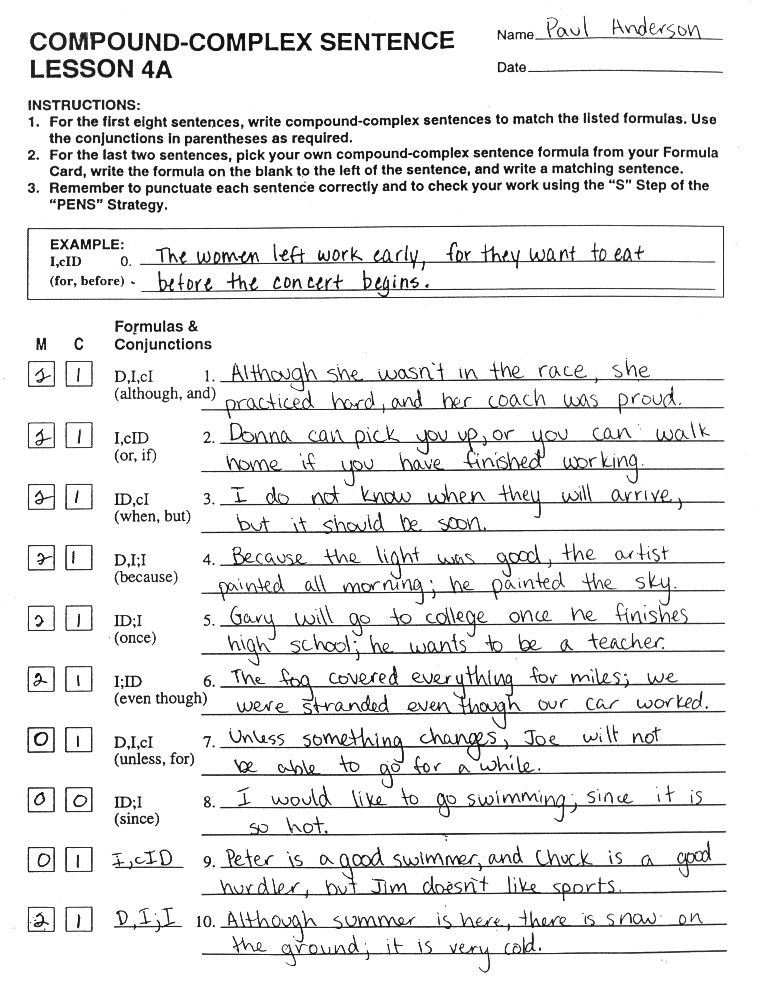 COMPOUND-COMPLEX SENTENCE
LESSON 4A
Name Paul Anderson
Date
INSTRUCTIONS:
1. For the first eight sentences, write compound-complex sentences to match the listed formulas. Use
the conjunctions in parentheses as required.
2. For the last two sentences, pick your own compound-complex sentence formula from your Formula
Card, write the formula on the blank to the left of the sentence, and write a matching sentence.
3. Remember to punctuate each sentence correctly and to check your work using the "S" Step of the
"PENS" Strategy.
EXAMPLE:
I,cID 0. The women left work early, for they want to eat
(for, before) - before the concert begins.
Formulas &
M C Conjunctions
2 1 D,I,cI 1. Although she wasn't in the race, she
(although, and) practiced hard, and her coach was proud.
2 1 I,cID 2. Donna can pick you up, or you can walk
(or, if) home if you have finished working.
2 1 ID,cI 3. I do not know when they will arrive,
(when, but) but it should be soon.
2 1 D,I;I 4. Because the light was good, the artist
(because) painted all morning; he painted the sky.
2 1 ID;I 5. Gary will go to college once he finishes
(once) high school; he wants to be a teacher.
2 1 I;ID 6. The fog covered everything for miles; we
(even though) were stranded even though our car worked.
0 1 D,I,cI 7. Unless something changes, Joe will not
(unless, for) be able to go for a while.
0 0 ID;I 8. I would like to go swimming; since it is
(since) so hot.
0 1 I,cID 9. Peter is a good swimmer, and Chuck is a good
hurdler, but Jim doesn't like sports.
2 1 D,I;I 10. Although summer is here, there is snow on
the ground; it is very cold.